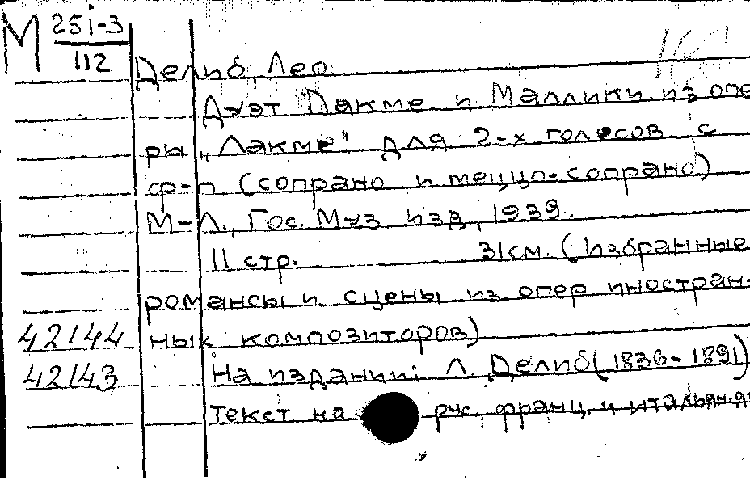 М 25 i-3
112
Делиб, Лео.
Дуэт Лакме и Маллики из опе
ры „Лакме" для 2-х голосов с
ф-п (сопрано и меццо-сопрано)
М-Л., Гос. Муз изд, 1939.
11 стр. 31см. (Избранные
романсы и сцены из опер иностран-
42144 ных композиторов)
42143 На издании: Л. Делиб (1836-1891)
Текст на рус. франц. и итальян.